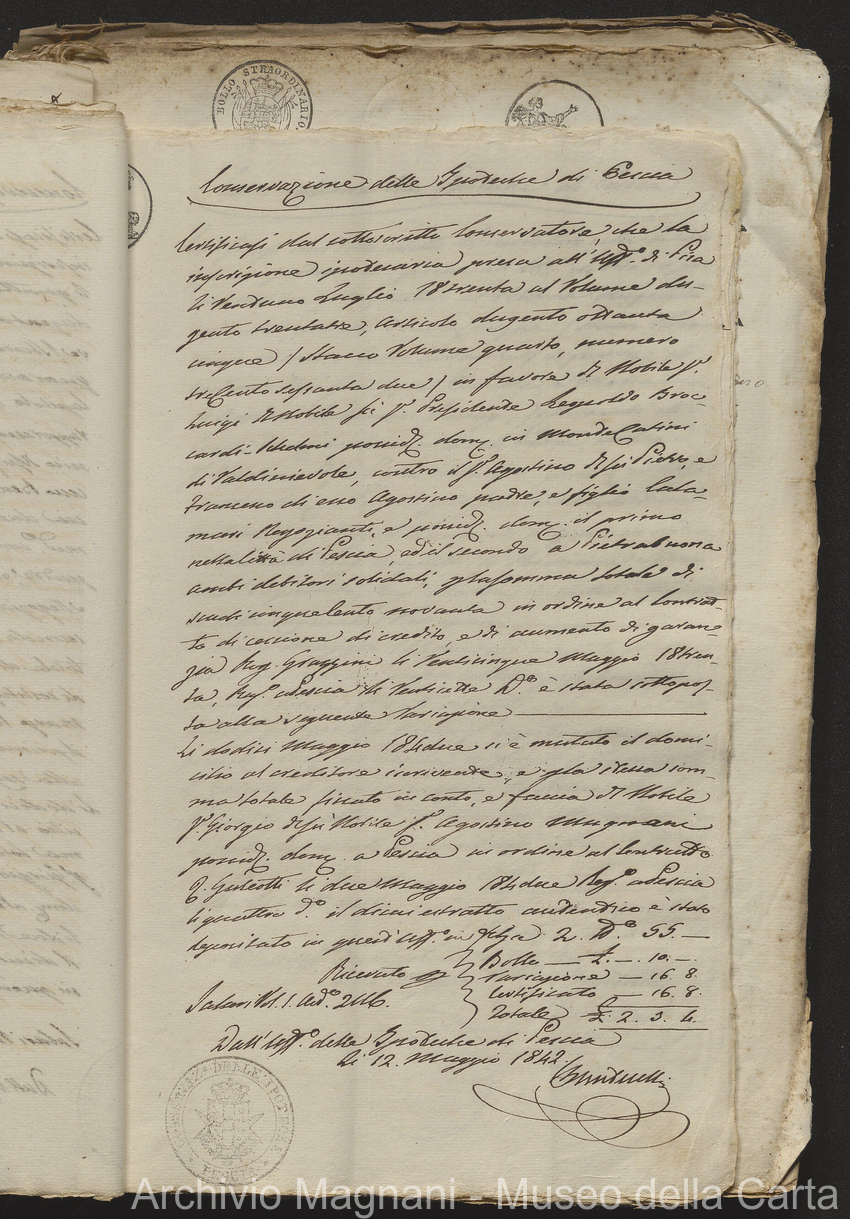 BOLLO STRAORDINARIO
Conservazione delle Ipoteche di Pescia
Certificasi dal sottoscritto Conservatore, che la
inscrizione ipotecaria presa all'Uff.o di Pisa
li Ventuno Luglio 18trenta al Volume du-
gento trentatre, articolo dugento ottanta
cinque / Stacco Volume quarto, numero
trecento sessanta due / in favore del Nobile Sr.
Luigi del Nobile fu Sr. Presidente Leopoldo Broc-
cardi- possid. dom. in Monte Catini
di Valdinievole, contro il Sr. Agostino del fu Pietro, e
Francesco di esso Agostino padre, e figlio Cala-
mari Negozianti, e possid. dom. il primo
nella Città di Pescia, ed il secondo a Pietrabuona
ambi debitori solidali, p la somma totale di
scudi cinquecento novanta in ordine al Contrat-
to di cessione di credito, e di aumento di garan-
zia Rog. Grazzini li Venticinque Maggio 18tren-
ta, Reg.o a Pescia li Ventisette D.o è stata sottopos-
ta alla seguente Variazione
Li dodici Maggio 184due si è mutato il domi-
cilio al creditore iscrivente, e p la stessa som-
ma totale in conto, e faccia del Nobile
Sr. Giorgio del fu Nobile Sr. Agostino Magnani
possid. dom. a Pescia in ordine al Contratto
R. Galeotti li due Maggio 184due Reg.o a Pescia
li quattro d.o il di cui estratto autentico è stato
depositato in quest'Uff.o in Filza 2. N.o 55.
Bollo — £ — . 10. —
Ricevuto Variazione — 16. 8.
Salari Vol. 1. Art.o 2116. Certificato — 16. 8.
Totale £ 2. 3. 4.
Dall'Uff.o delle Ipoteche di Pescia
Li 12. Maggio 1842.
CONSERVAZ. DELLE IPOTECHE
PESCIA
Archivio Magnani - Museo della Carta